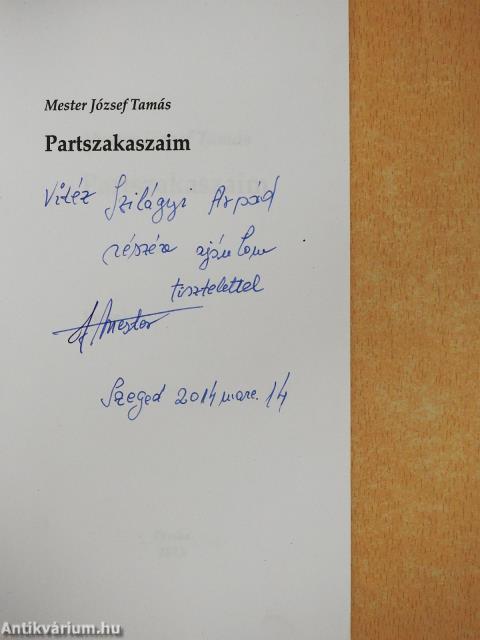 Mester József Tamás
Partszakaszaim
Vitéz Szilágyi Árpád
részére ajánlom
tisztelettel
Mester
Szeged 2014 marc. 14
Antikvárium.hu